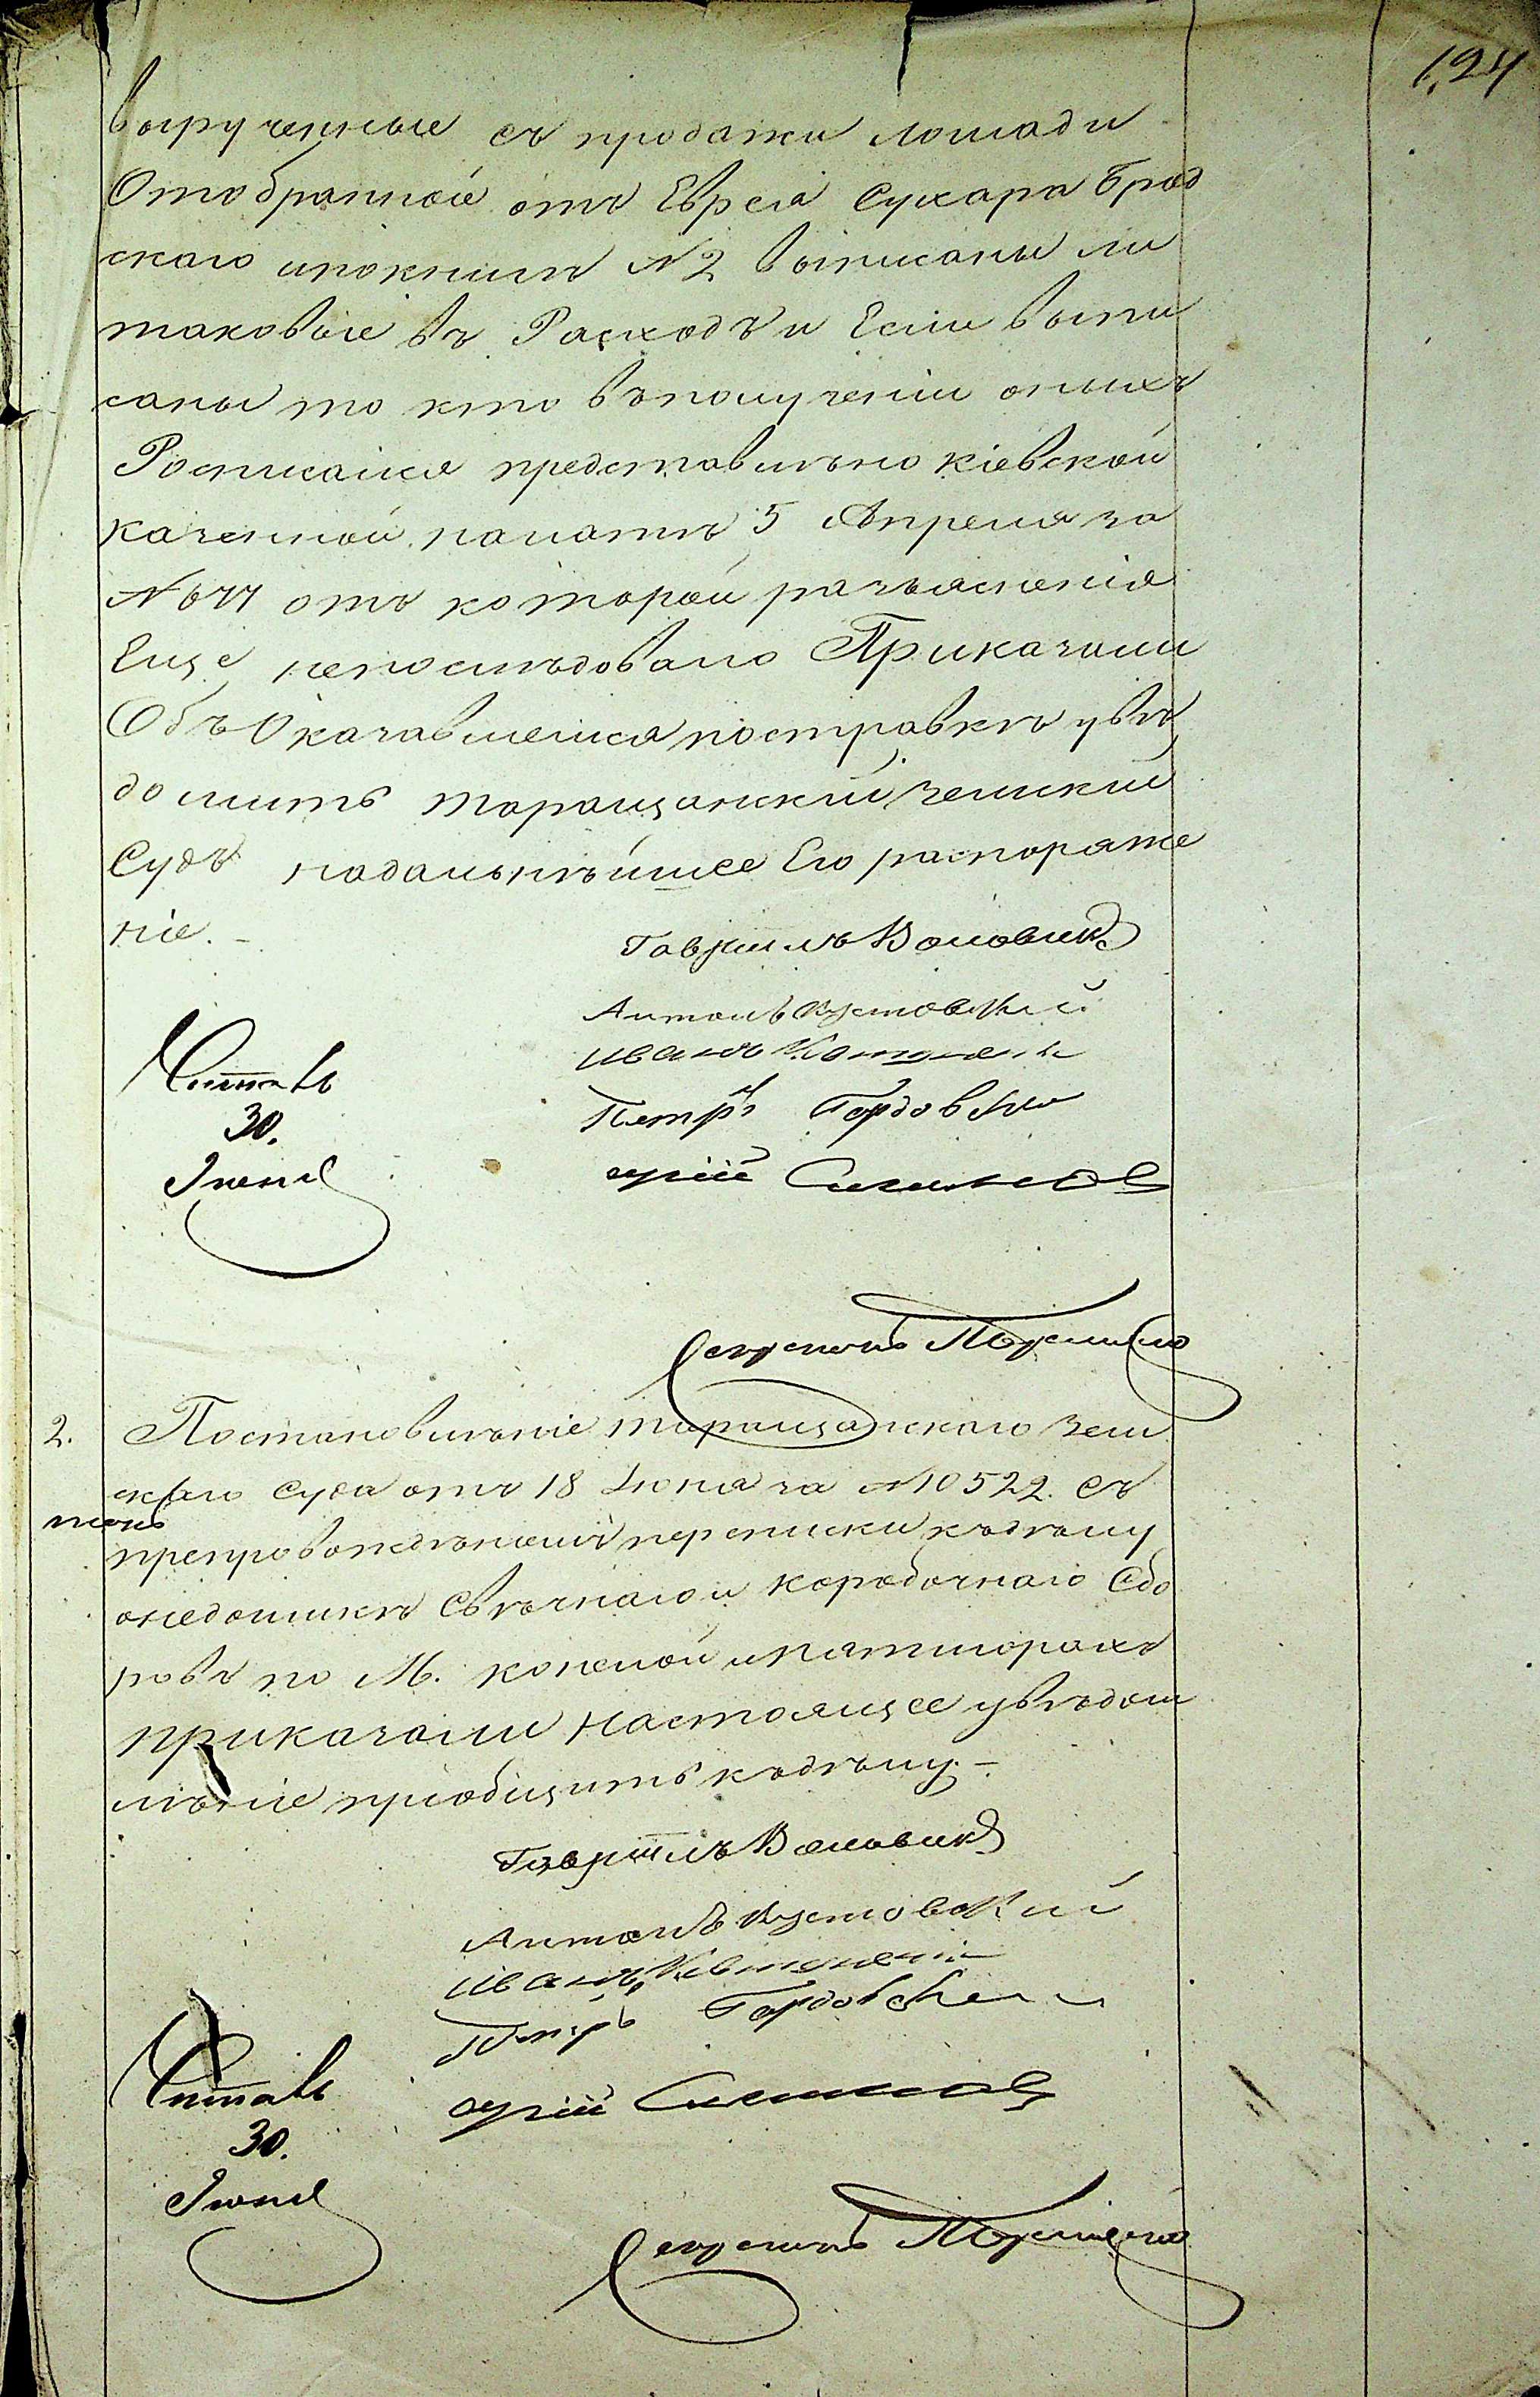 124
вырученные съ продажи лошади
Отобранной отъ Еврея Сухара Брод
скаго ипокниге N 2 выписаны ли
таковые въ Расходъ и Если выпи
саны то кто въполученіи оныхъ
Росписался представлѣно кіевской
казенной палатѣ 5 Апреля за
N 677 отъ которой разъясненія
Еще непослѣдовало Приказали
Объ Оказавшемся посправкѣ увѣ
домить таращанскій земскій
Судъ надальнѣйшее Его распоряже
ніе. –
Гавріилъ Воловик
Антонъ Кустовскій
Иванъ
Петръ Гордовскій
Юрій
Читалъ
30.
Іюня
Секретарь
2. Постановилѣніе таращанскаго Зем
скаго Суда отъ 18 Іюня за N 10522. съ
препровожденіемъ переписки кдѣлу
онедоимкѣ Свѣчнаго и Коробочнаго Сбо
ровъ по М. конелой ипятигорахъ
приказали настоящее увѣдом
лѣніе пріобщить къдѣлу. –
Гавріилъ Воловик
Антонъ Кустовскій
Иванъ
Петръ Гордовскій
Юрій
Читалъ
30.
Іюня
Секретарь